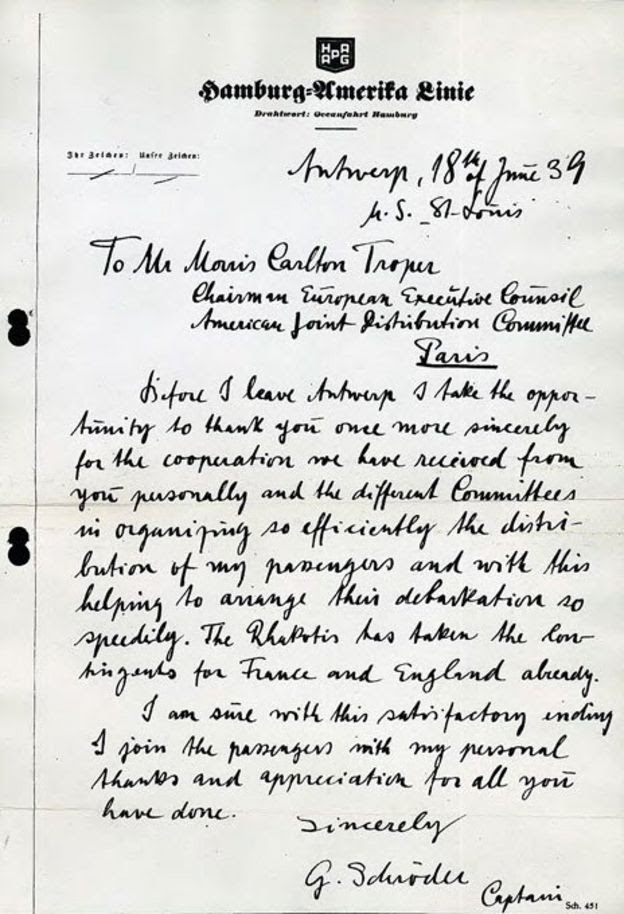 HAPAG
Hamburg-Amerika Linie
Drahtwort: Oceanfahrt Hamburg
Ihr Zeichen: Unsre Zeichen:
Antwerp, 18th of June 39
M.S. St-Louis
To Mr Morris Carlton Troper
Chairman European Executive Counsil
American Joint Distribution Committee
Paris
Before I leave Antwerp I take the oppor-
tunity to thank you once more sincerely
for the cooperation we have received from
you personally and the different Committees
in organizing so efficiently the distri-
bution of my passengers and with this
helping to arrange their debarkation so
speedily. The Rhakotis has taken the con-
tingents for France and England already.
I am sure with this satisfactory ending
I join the passengers with my personal
thanks and appreciation for all you
have done.
Sincerely
G. Schröder
Captain
Sch. 451